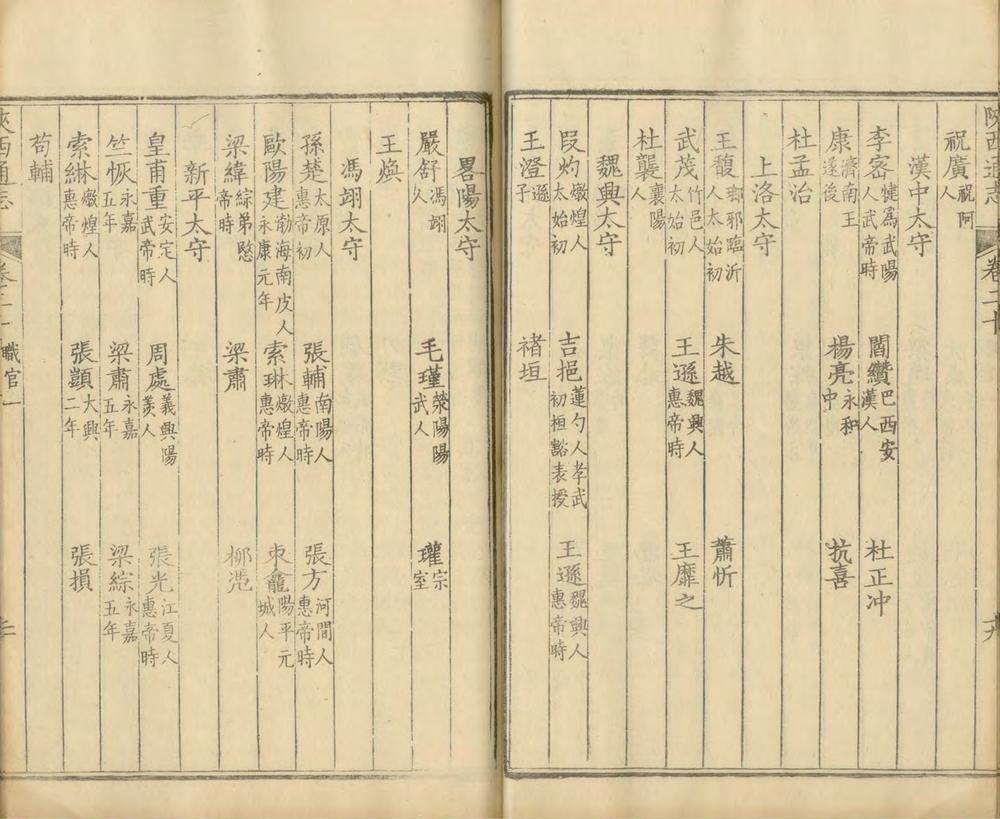 陝西通志 卷二十
祝廣祝阿人
漢中太守
李宻犍爲武陽人武帝時 閻纘巴西安漢人 杜正冲
康濟南王遂後 楊亮永和中 抗喜
杜孟治
上洛太守
王馥瑯邪臨沂人太始初 朱越 蕭忻
武茂竹邑人太始初 王遜魏興人惠帝時 王靡之
杜襲襄陽人
魏興太守
段灼燉煌人太始初 吉挹蓮勺人孝武初桓豁表授 王遜魏興人惠帝時
王澄遜子 褚垣
畧陽太守
嚴舒馮翊久 毛瑾滎陽陽武人 瓘宗室
王煥
馮翊太守
孫楚太原人惠帝初 張輔南陽人惠帝時 張方河間人惠帝時
歐陽建渤海南皮人永康元年 索琳燉煌人惠帝時 束龕陽平元城人
梁緯綜弟愍帝時 梁肅 柳凴
新平太守
皇甫重安定人武帝時 周處義興陽羨人 張光江夏人惠帝時
竺恢永嘉五年 梁肅永嘉五年 梁綜永嘉五年
索綝燉煌人惠帝時 張顗大興二年 張損
苟輔
陝西通志 職官一